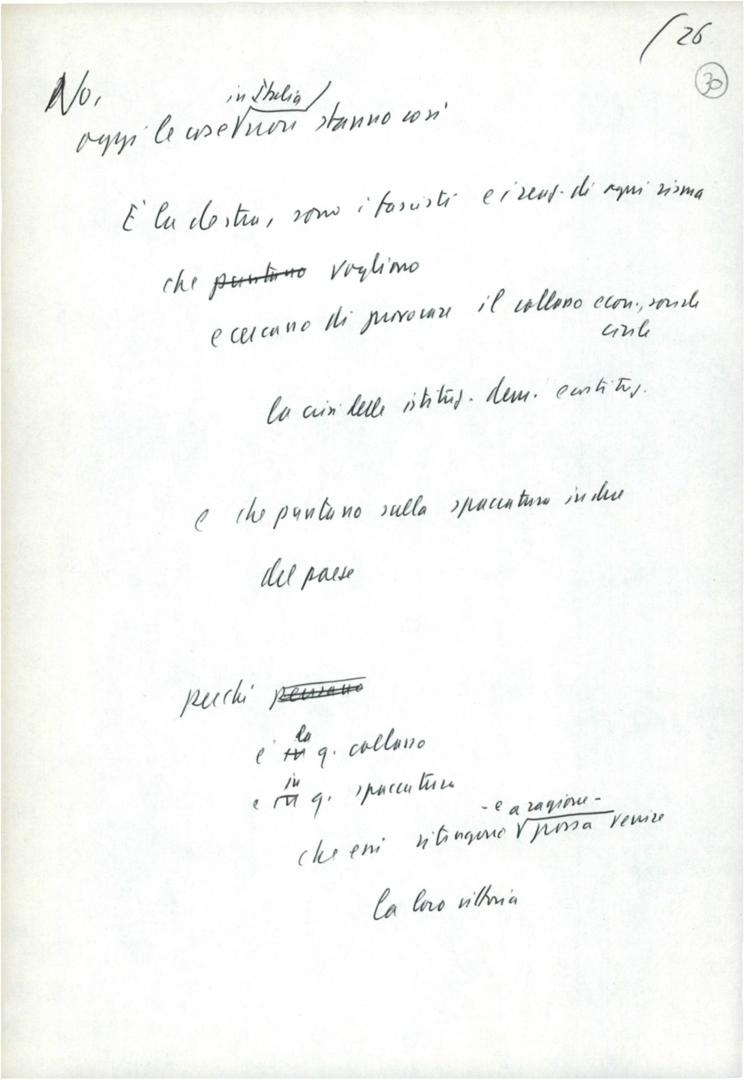 26
30
No,
in Italia
oggi le cose non stanno così
È la destra, sono i fascisti e i reaz. di ogni risma
che puntano vogliono
e cercano di provocare il collasso econ., sociale
civile
la crisi delle istituz. dem. costituz.
e che puntano sulla spaccatura in due
del paese
perché pensano
da
è in q. collasso
in
e q. spaccatura
- e a ragione -
che essi ritengono possa venire
la loro vittoria